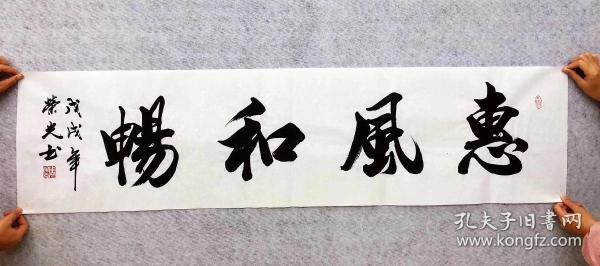 惠風和暢
戊戌年
榮光书
孔夫子旧書网
www.kongfz.com